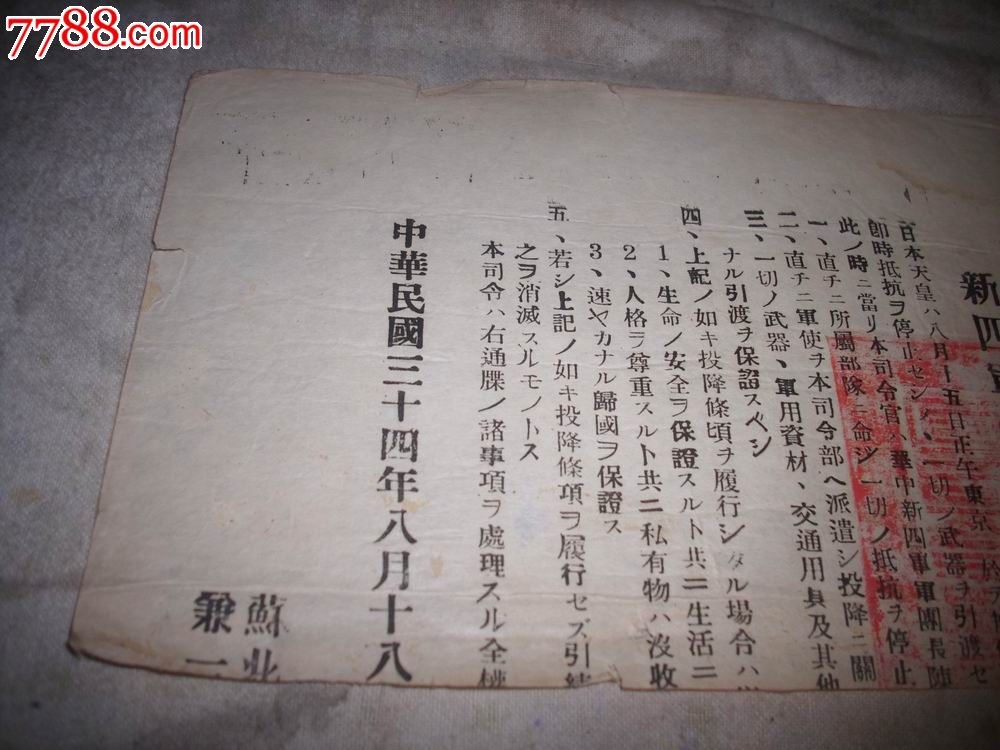 7788.com
新四軍
日本天皇ハ八月十五日正午東京
即時抵抗ヲ停止セシメ、一切ノ武器ヲ引渡セ
此ノ時ニ當リ本司令官ハ華中新四軍軍團長陳
一、直チニ所屬部隊ニ命ジ一切ノ抵抗ヲ停止
二、直チニ軍使ヲ本司令部ヘ派遣シ投降ニ關
三、一切ノ武器、軍用資材、交通用具及其他
ナル引渡ヲ保證スベシ
四、上記ノ如キ投降條項ヲ履行シタル場合ハ
1、生命ノ安全ヲ保證スルト共ニ生活ニ
2、人格ヲ尊重スルト共ニ私有物ハ沒收
3、速ヤカナル歸國ヲ保證ス
五、若シ上記ノ如キ投降條項ヲ履行セズ引續
之ヲ消滅スルモノトス
本司令ハ右通牒ノ諸事項ヲ處理スル全權
中華民國三十四年八月十八
蘇北
兼一